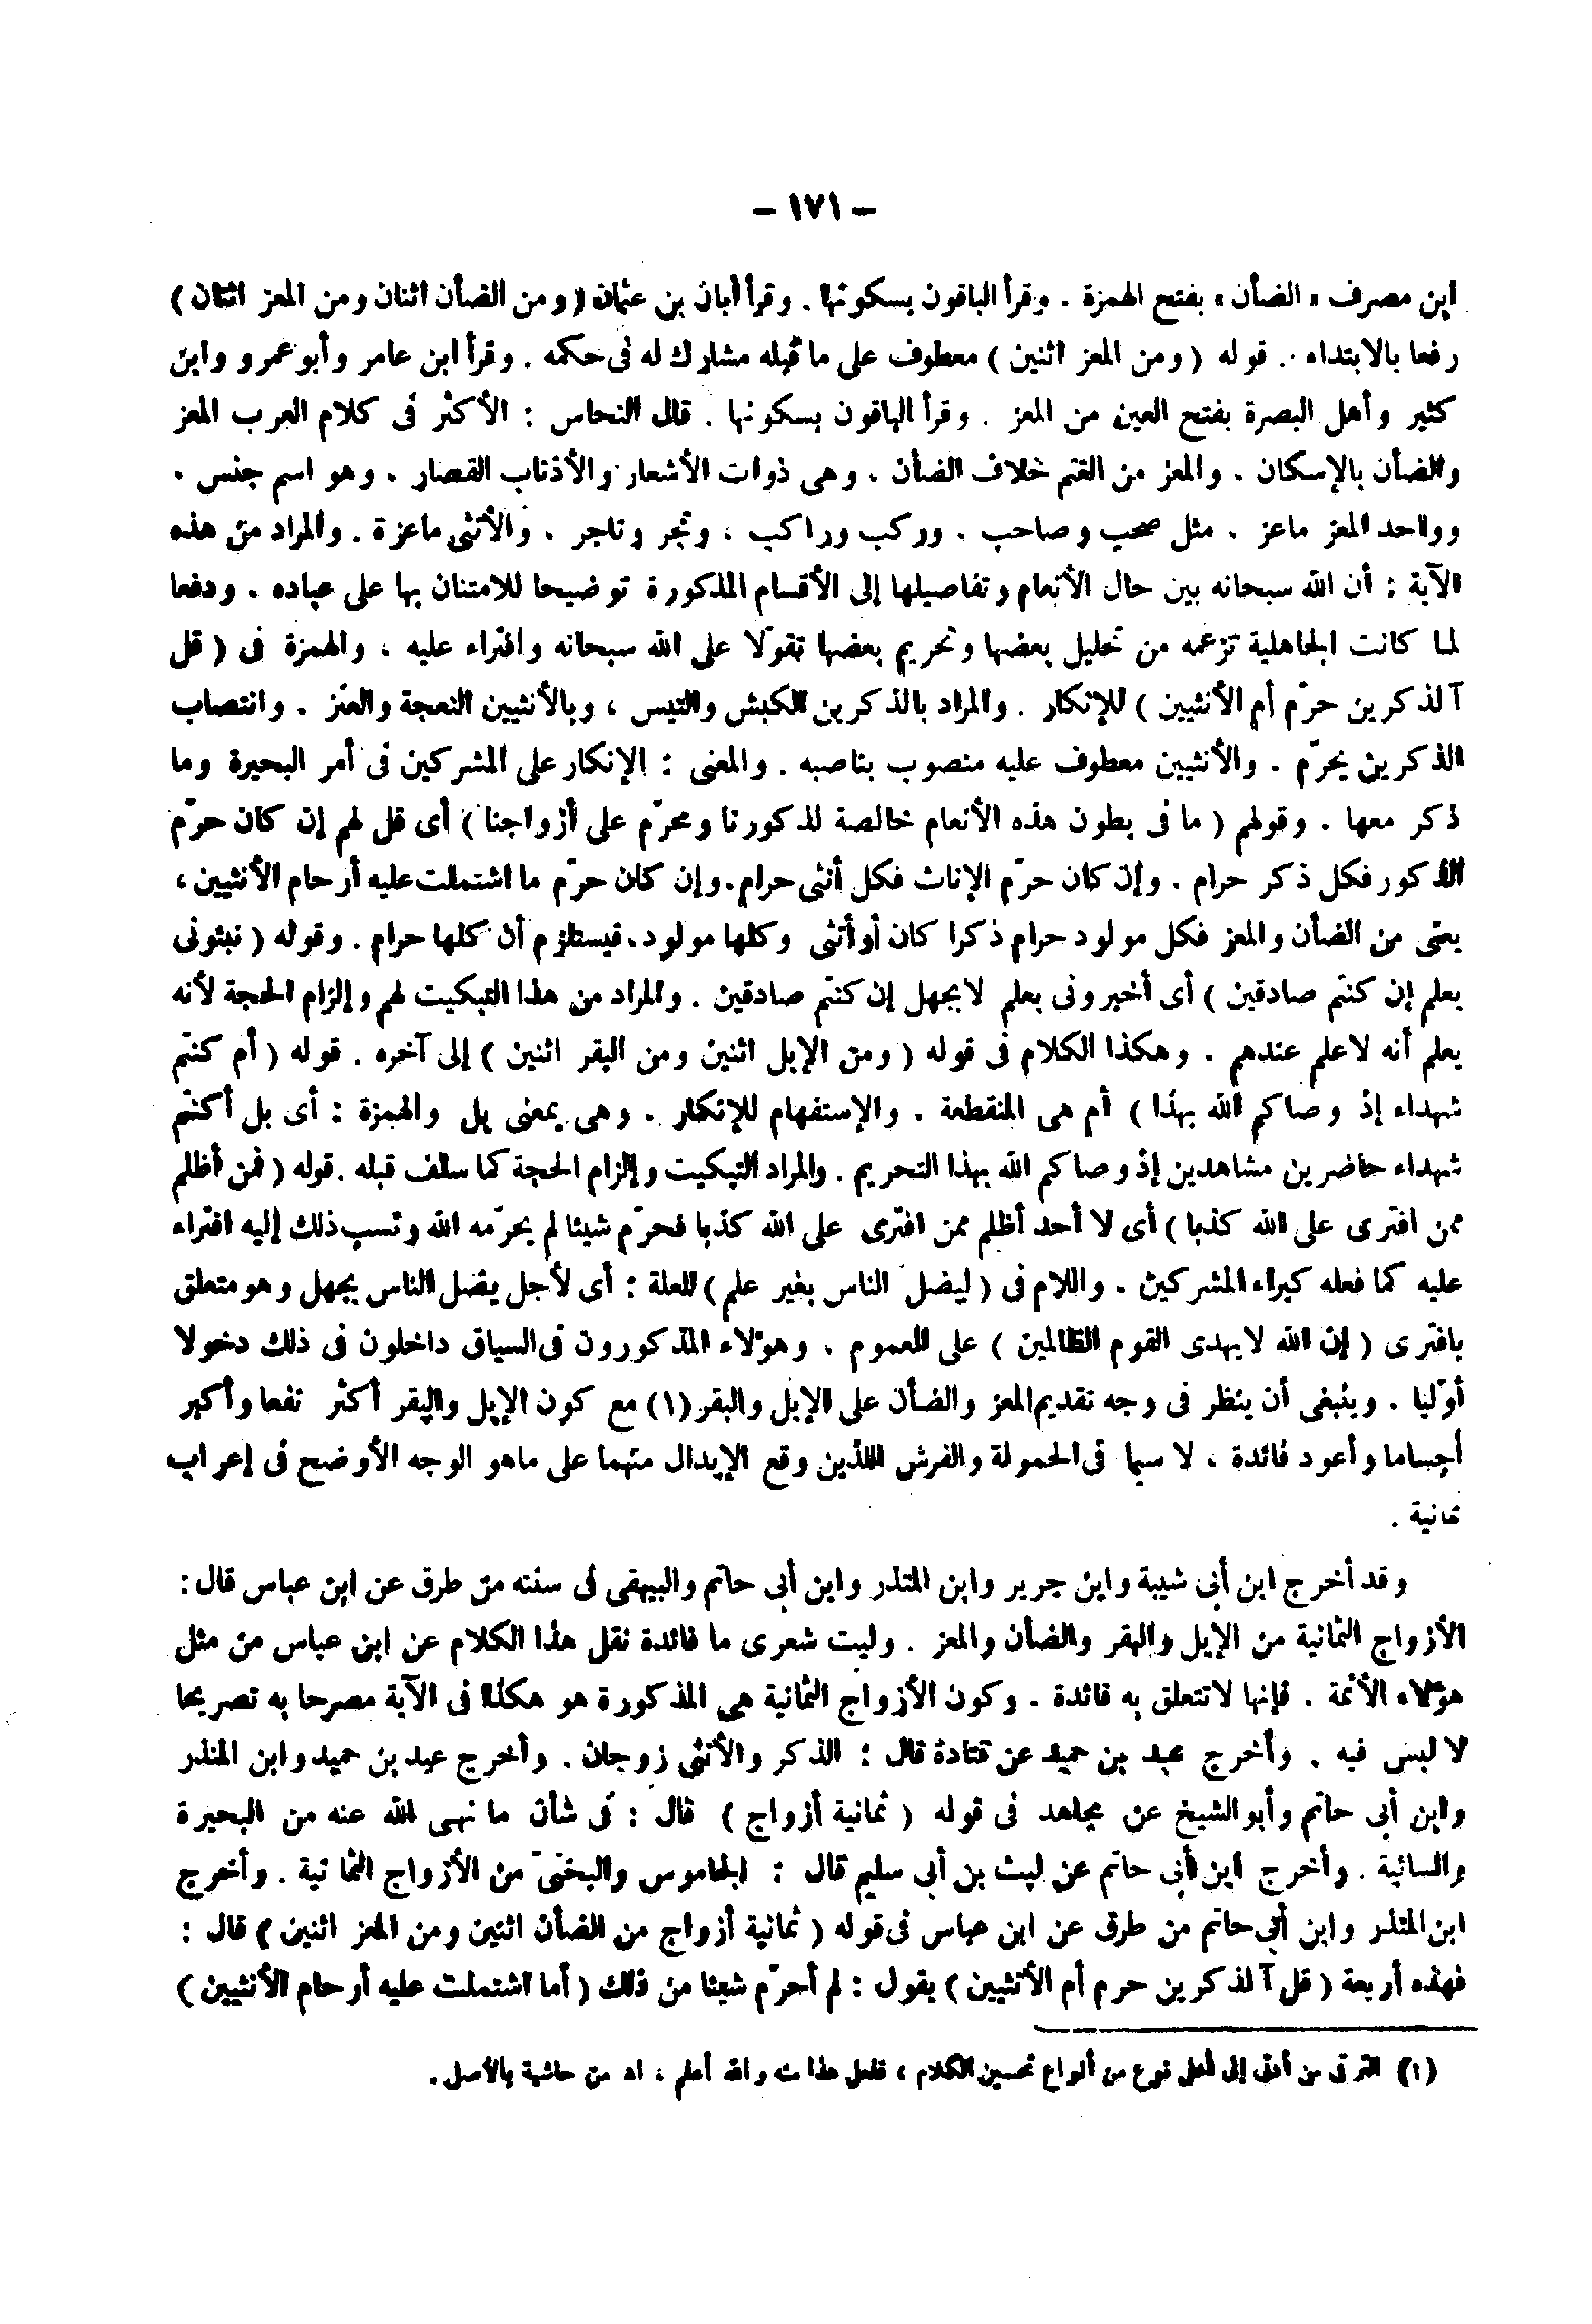 – ١٧١ –
ابن مصرف « الضأن » بفتح الهمزة . وقرأ الباقون بسكونها . وقرأ أبان بن عثمان ( ومن الضأن اثنان ومن المعز اثنان )
رفعا بالابتداء . قوله ( ومن المعز اثنين ) معطوف على ما قبله مشارك له فى حكمه . وقرأ ابن عامر وأبو عمرو وابن
كثير وأهل البصرة بفتح العين من المعز . وقرأ الباقون بسكونها . قال النحاس : الأكثر فى كلام العرب المعز
والضأن بالإسكان . والمعز من الغنم خلاف الضأن ، وهى ذوات الأشعار والأذناب القصار ، وهو اسم جنس .
وواحد المعز ماعز . مثل صحب وصاحب . وركب وراكب ، وتجر وتاجر . والأنثى ماعزة . والمراد من هذه
الآية : أن الله سبحانه بين حال الأنعام وتفاصيلها إلى الأقسام المذكورة توضيحا للامتنان بها على عباده . ودفعا
لما كانت الجاهلية تزعمه من تحليل بعضها وتحريم بعضها تقوّلا على الله سبحانه وافتراء عليه ، والهمزة فى ( قل
آلذكرين حرّم أم الأنثيين ) للإنكار . والمراد بالذكرين الكبش والتيس ، وبالأنثيين النعجة والعنز . وانتصاب
الذكرين بحرّم . والأنثيين معطوف عليه منصوب بناصبه . والمعنى : الإنكار على المشركين فى أمر البحيرة وما
ذكر معها . وقولهم ( ما فى بطون هذه الأنعام خالصة لذكورنا ومحرّم على أزواجنا ) أى قل لهم إن كان حرّم
الذكور فكل ذكر حرام . وإن كان حرّم الإناث فكل أنثى حرام . وإن كان حرّم ما اشتملت عليه أرحام الأنثيين ،
يعنى من الضأن والمعز فكل مولود حرام ذكرا كان أو أنثى وكلها مولود ، فيستلزم أن كلها حرام . وقوله ( نبئونى
بعلم إن كنتم صادقين ) أى أخبرونى بعلم لا بجهل إن كنتم صادقين . والمراد من هذا التبكيت لهم وإلزام الحجة لأنه
يعلم أنه لا علم عندهم . وهكذا الكلام فى قوله ( ومن الإبل اثنين ومن البقر اثنين ) إلى آخره . قوله ( أم كنتم
شهداء إذ وصاكم الله بهذا ) أم هى المنقطعة . والإستفهام للإنكار . وهى بمعنى بل والهمزة : أى بل أكنتم
شهداء حاضرين مشاهدين إذ وصاكم الله بهذا التحريم . والمراد التبكيت وإلزام الحجة كما سلف قبله . قوله ( فمن أظلم
ممن افترى على الله كذبا ) أى لا أحد أظلم ممن افترى على الله كذبا فحرّم شيئا لم يحرّمه الله ونسب ذلك إليه افتراء
عليه كما فعله كبراء المشركين . واللام فى ( ليضلّ الناس بغير علم ) للعلة : أى لأجل يضل الناس بجهل وهو متعلق
بافترى ( إن الله لا يهدى القوم الظالمين ) على العموم . وهؤلاء المذكورون فى السياق داخلون فى ذلك دخولا
أوّليا . وينبغى أن ينظر فى وجه تقديم المعز والضأن على الإبل والبقر (١) مع كون الإبل والبقر أكثر نفعا وأكبر
أجساما وأعود فائدة ، لا سيما فى الحمولة والفرش اللذين وقع الإبدال منهما على ماهو الوجه الأوضح فى إعراب
ثمانية .
وقد أخرج ابن أبى شيبة وابن جرير وابن المنذر وابن أبى حاتم والبيهقى فى سننه من طرق عن ابن عباس قال :
الأزواج الثمانية من الإبل والبقر والضأن والمعز . وليت شعرى ما فائدة نقل هذا الكلام عن ابن عباس من مثل
هؤلاء الأئمة . فإنها لا تتعلق به فائدة . وكون الأزواج الثمانية هى المذكورة هو هكذا فى الآية مصرحا به تصريحا
لا لبس فيه . وأخرج عبد بن حميد عن قتادة قال : الذكر والأنثى زوجان . وأخرج عبد بن حميد وابن المنذر
وابن أبى حاتم وأبو الشيخ عن مجاهد فى قوله ( ثمانية أزواج ) قال : فى شأن ما نهى الله عنه من البحيرة
والسائبة . وأخرج ابن أبى حاتم عن ليث بن أبى سليم قال : الجاموس والبختىّ من الأزواج الثمانية . وأخرج
ابن المنذر وابن أبى حاتم من طرق عن ابن عباس فى قوله ( ثمانية أزواج من الضأن اثنين ومن المعز اثنين ) قال :
فهذه أربعة ( قل آلذكرين حرم أم الأنثيين ) يقول : لم أحرّم شيئا من ذلك ( أما اشتملت عليه أرحام الأنثيين )
(١) الترقى من أدنى إلى أعلى نوع من أنواع تحسين الكلام ، فلعل هذا منه والله أعلم ، اه من حاشية بالأصل .